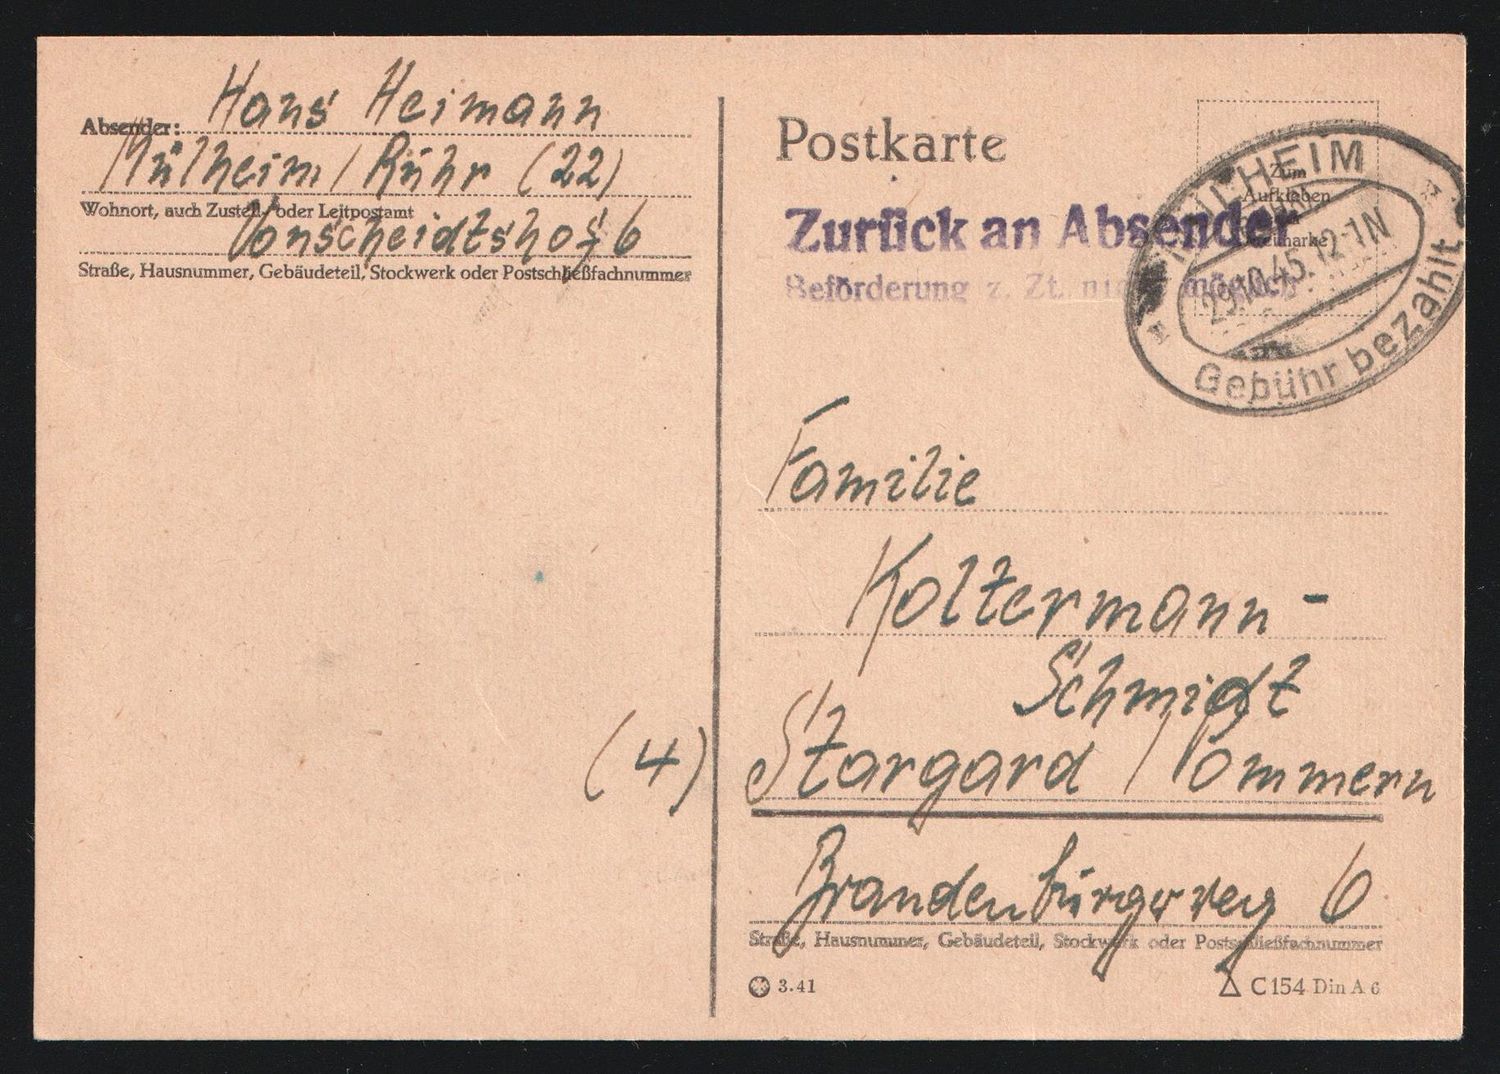 Absender: Hans Heimann
Mülheim / Ruhr (22)
Wohnort, auch Zustell- oder Leitpostamt
Vonscheidtshof 6
Straße, Hausnummer, Gebäudeteil, Stockwerk oder Postschließfachnummer
Postkarte
Zum
Aufkleben
MÜLHEIM
29.10.45.12-1N
Gebühr bezahlt
Zurück an Absender
Beförderung z. Zt. nicht möglich
Familie
Koltermann-
Schmidt
(4) Stargard / Pommern
Brandenburgerweg 6
Straße, Hausnummer, Gebäudeteil, Stockwerk oder Postschließfachnummer
3.41
C 154 Din A 6